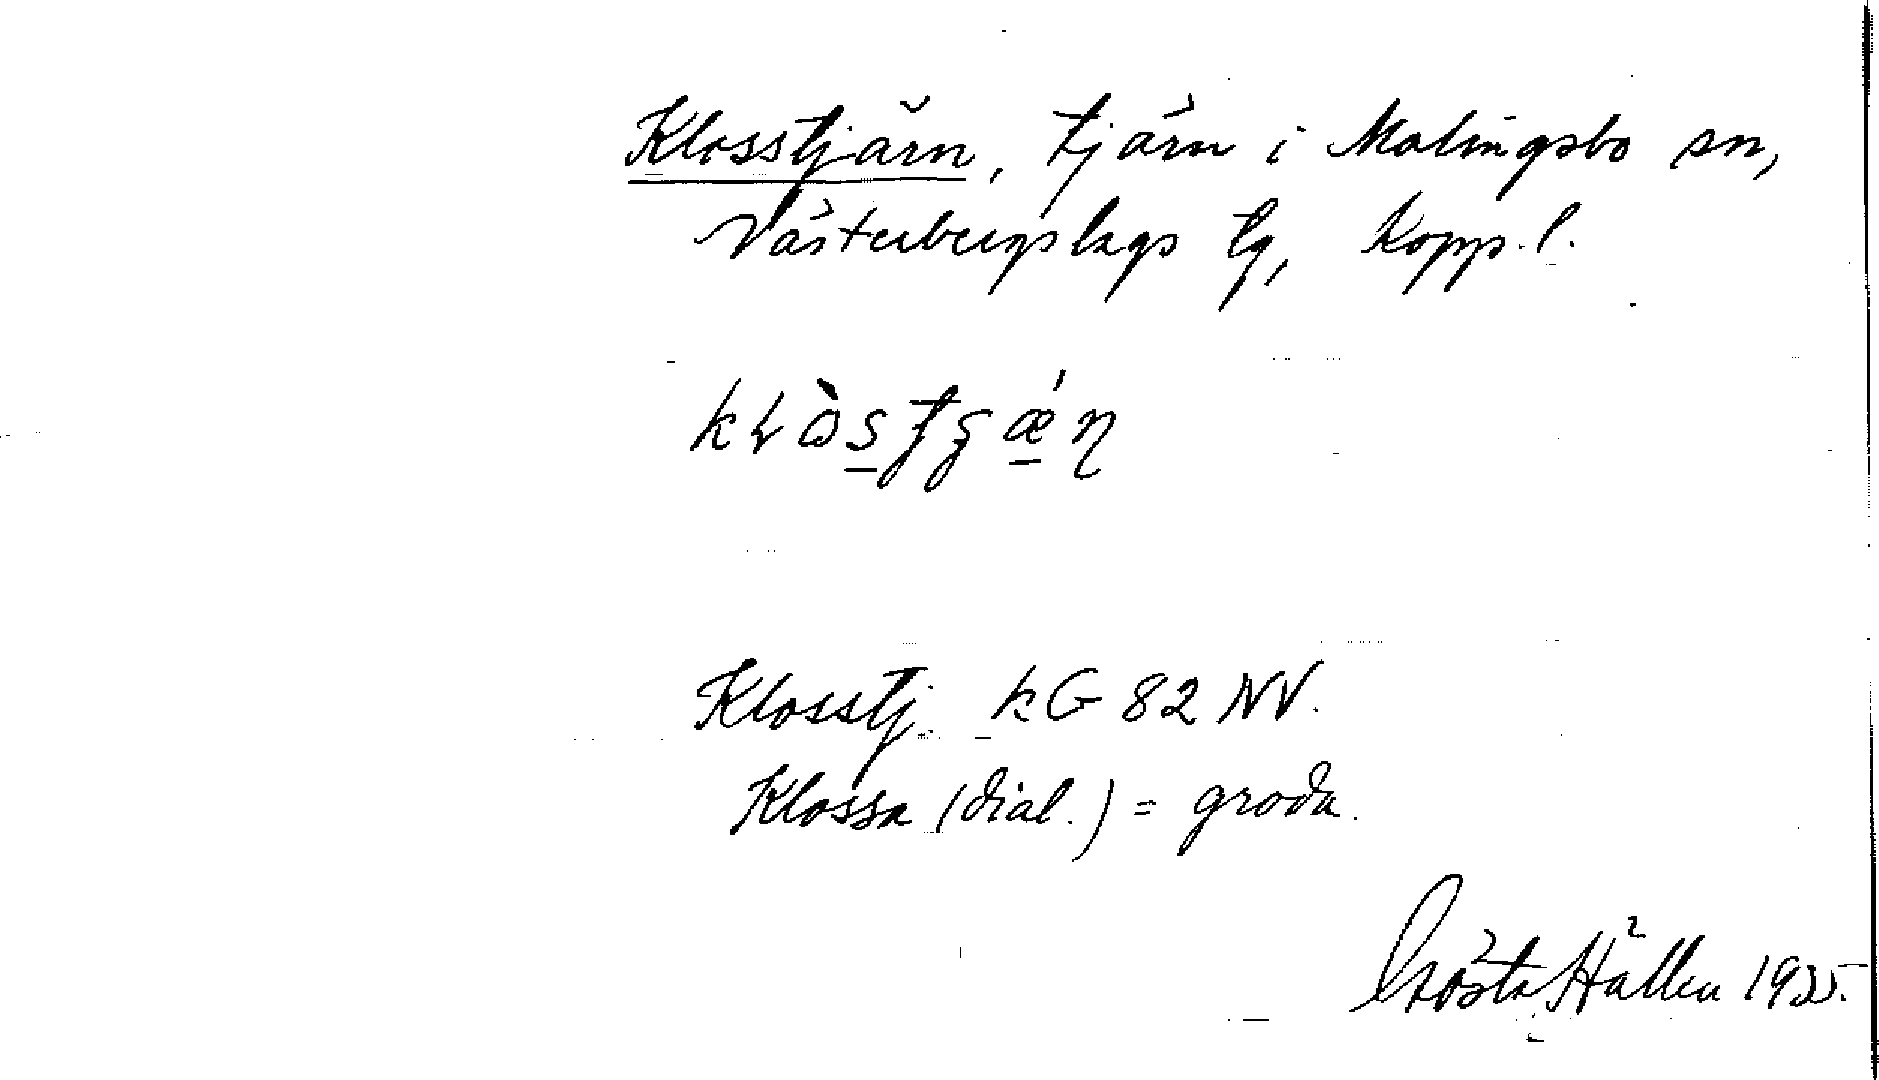 Klosstjärn, tjärn i Malingsbo sn,
Västerbergslags tg, Kopp. l.
Klosstj. kG 82 NV.
Klossa (dial.) = groda.
Gösta Hällen 1935.